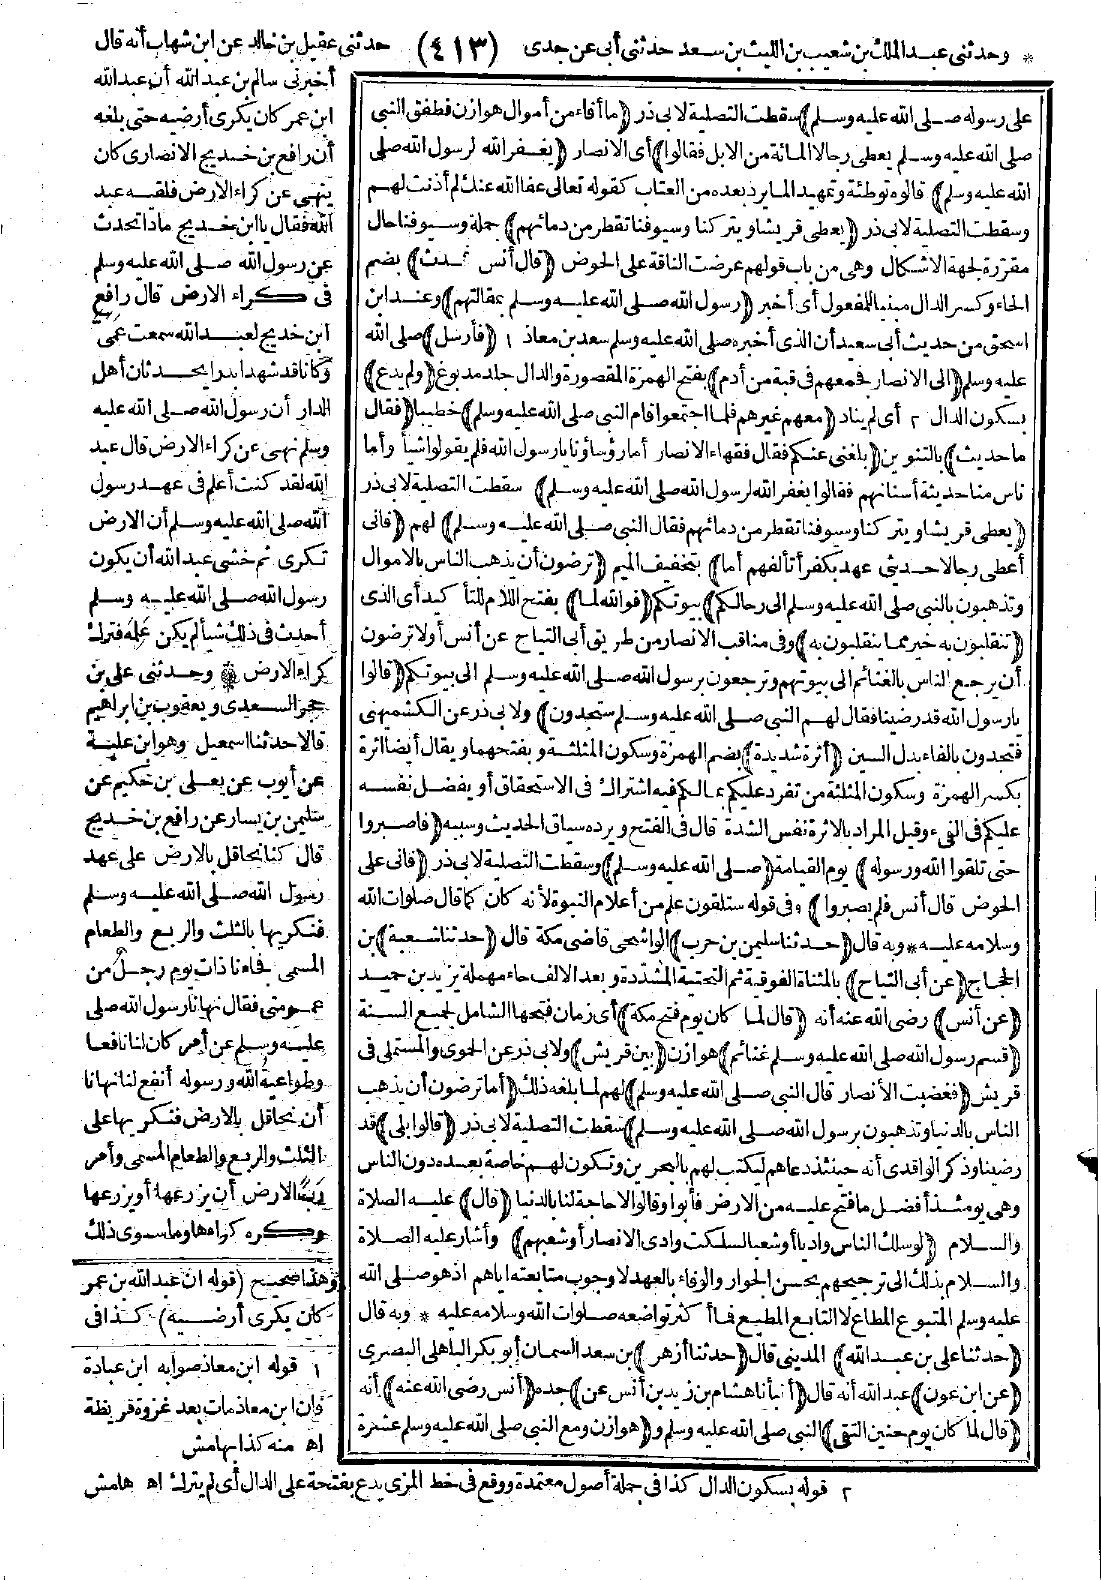 * وحدثنى عبد الملك بن شعيب بن الليث بن سعد حدثنى أبى عن جدى (٤١٣) حدثنى عقيل بن خالد عن ابن شهاب أنه قال
على رسوله صلى الله عليه وسلم) سقطت التصلية لابى ذر (ما أفاء من أموال هوازن فطفق النبى
صلى الله عليه وسلم يعطى رجالا المائة من الابل فقالوا) أى الانصار (يغفر الله لرسول الله صلى
الله عليه وسلم) قالوه توطئة وتمهيد المايرد بعده من العتاب كقوله تعالى عفا الله عنك لم أذنت لهم
وسقطت التصلية لابى ذر (يعطى قريشا ويتركنا وسيوفنا تقطر من دمائهم) جملة وسيوفنا حال
مقررة لجهة الاشكال وهى من باب قولهم عرضت الناقة على الحوض (قال أنس فحدث) بضم
الحاء وكسر الدال مبنيا للمفعول أى أخبر (رسول الله صلى الله عليه وسلم بمقالتهم) وعند ابن
اسحق من حديث أبى سعيد أن الذى أخبره صلى الله عليه وسلم سعد بن معاذ ١ (فأرسل) صلى الله
عليه وسلم (الى الانصار فجمعهم فى قبة من أدم) بفتح الهمزة المقصورة والدال جلد مدبوغ (ولم يدع)
بسكون الدال ٢ أى لم يناد (معهم غيرهم فلما اجتمعوا قام النبى صلى الله عليه وسلم) خطيبا (فقال
ما حديث) بالتنوين (بلغنى عنكم فقال فقهاء الانصار أما رؤساؤنا يارسول الله فلم يقولوا شيأ وأما
ناس منا حديثة أسنانهم فقالوا يغفر الله لرسول الله صلى الله عليه وسلم) سقطت التصلية لابى ذر
(يعطى قريشا ويتركنا وسيوفنا تقطر من دمائهم فقال النبى صلى الله عليه وسلم) لهم (فانى
أعطى رجالا حديثى عهد بكفر أتألفهم أما) بتخفيف الميم (ترضون أن يذهب الناس بالاموال
وتذهبون بالنبى صلى الله عليه وسلم الى رحالكم) بيوتكم (فوالله لما) بفتح اللام للتأكيد أى الذى
(تنقلبون به خير مما ينقلبون به) وفى مناقب الانصار من طريق أبى التياح عن أنس أولا ترضون
أن يرجع الناس بالغنائم الى بيوتهم وترجعون برسول الله صلى الله عليه وسلم الى بيوتكم (قالوا
يارسول الله قد رضينا فقال لهم النبى صلى الله عليه وسلم ستجدون) ولابى ذر عن الكشميهنى
فتجدون بالفاء بدل السين (أثرة شديدة) بضم الهمزة وسكون المثلثة وبفتحهما ويقال أيضا اثرة
بكسر الهمزة وسكون المثلثة من تفرد عليكم بما لكم فيه اشتراك فى الاستحقاق أو يفضل نفسه
عليكم فى الفىء وقيل المراد بالاثرة نفس الشدة قال فى الفتح ويرده سياق الحديث وسببه (فاصبروا
حتى تلقوا الله ورسوله) يوم القيامة (صلى الله عليه وسلم) وسقطت التصلية لابى ذر (فانى على
الحوض قال أنس فلم يصبروا) وفى قوله ستلقون علم من أعلام النبوة لأنه كان كما قال صلوات الله
وسلامه عليه * وبه قال (حدثنا سليمن بن حرب) الواشحى قاضى مكة قال (حدثنا شعبة) بن
الحجاج (عن أبى التياح) بالمثناة الفوقية ثم التحتية المشددة وبعد الالف حاء مهملة يزيد بن حميد
(عن أنس) رضى الله عنه أنه (قال لما كان يوم فتح مكة) أى زمان فتحها الشامل لجميع السنة
(قسم رسول الله صلى الله عليه وسلم غنائم) هوازن (بين قريش) ولابى ذر عن الحموى والمستملى فى
قريش (فغضبت الأنصار قال النبى صلى الله عليه وسلم) لهم لما بلغه ذلك (أما ترضون أن يذهب
الناس بالدنيا وتذهبون برسول الله صلى الله عليه وسلم) سقطت التصلية لابى ذر (قالوا بلى) قد
رضينا وذكر الواقدى أنه حينئذ دعاهم ليكتب لهم بالبحرين وتكون لهم خاصة بعده دون الناس
وهى يومئذ أفضل ما فتح عليه من الارض فأبوا وقالوا لا حاجة لنا بالدنيا (قال) عليه الصلاة
والسلام (لو سلك الناس واديا أو شعبا لسلكت وادى الانصار أو شعبهم) وأشار عليه الصلاة
والسلام بذلك الى ترجيحهم بحسن الجوار والوفاء بالعهد لا وجوب متابعته اياهم اذ هو صلى الله
عليه وسلم المتبوع المطاع لا التابع المطيع فما أكثر تواضعه صلوات الله وسلامه عليه * وبه قال
(حدثنا على بن عبد الله) المدينى قال (حدثنا أزهر) بن سعد السمان أبو بكر الباهلى البصرى
(عن ابن عون) عبد الله أنه قال (أنبأنا هشام بن زيد بن أنس عن) جده (أنس رضى الله عنه) أنه
(قال لما كان يوم حنين التقى) النبى صلى الله عليه وسلم و (هوازن ومع النبى صلى الله عليه وسلم عشرة
أخبرنى سالم بن عبد الله أن عبد الله
ابن عمر كان يكرى أرضيه حتى بلغه
أن رافع بن خديج الانصارى كان
ينهى عن كراء الارض فلقيه عبد
الله فقال يا ابن خديج ماذا تحدث
عن رسول الله صلى الله عليه وسلم
فى كراء الارض قال رافع
ابن خديج لعبد الله سمعت عمى
وكانا قد شهدا بدرا يحدثان أهل
الدار أن رسول الله صلى الله عليه
وسلم نهى عن كراء الارض قال عبد
الله لقد كنت أعلم فى عهد رسول
الله صلى الله عليه وسلم أن الارض
تكرى ثم خشى عبد الله أن يكون
رسول الله صلى الله عليه وسلم
أحدث فى ذلك شيأ لم يكن علمه فترك
كراء الارض * وحدثنى على بن
حجر السعدى ويعقوب بن ابراهيم
قالا حدثنا اسمعيل وهو ابن علية
عن أيوب عن يعلى بن حكيم عن
سليمن بن يسار عن رافع بن خديج
قال كنا نحاقل بالارض على عهد
رسول الله صلى الله عليه وسلم
فنكريها بالثلث والربع والطعام
المسمى فجاءنا ذات يوم رجل من
عمومتى فقال نهانا رسول الله صلى
عليه وسلم عن أمر كان لنا نافعا
وطواعية الله ورسوله أنفع لنا نهانا
أن نحاقل بالارض فنكريها على
الثلث والربع والطعام المسمى وأمر
رب الارض أن يزرعها أو يزرعها
وكره كراءها وما سوى ذلك
وهذا صحيح (قوله ان عبد الله بن عمر
كان يكرى أرضيه) كذا فى
١ قوله ابن معاذ صوابه ابن عبادة
فان ابن معاذ مات بعد غزوة قريظة
اه منه كذا بهامش
٢ قوله بسكون الدال كذا فى جملة أصول معتمدة ووقع فى خط المزى يدع بفتحة على الدال أى لم يترك اه هامش